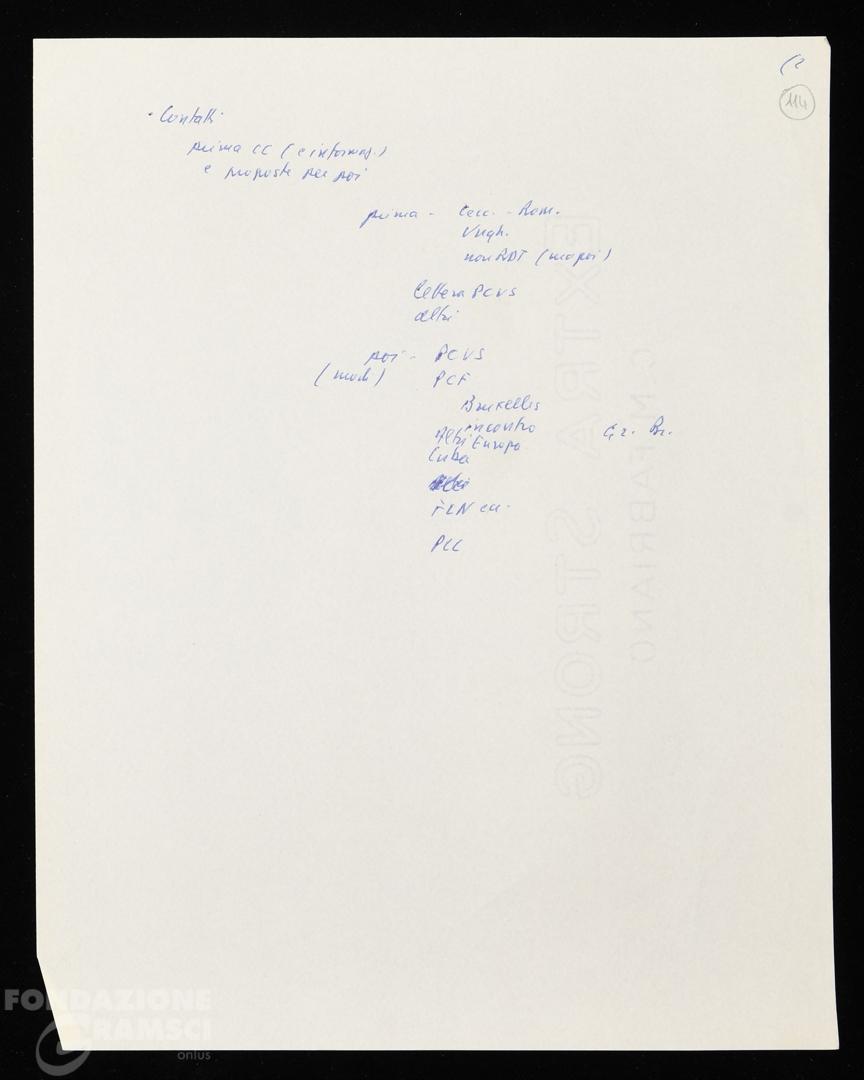 (2
114
- Contatti
prima CC (e informaz.)
e proposte per poi
prima - Cecc. - Rom.
Ungh.
non RDT (ma poi)
Lettera PCUS
altri
poi - PCUS
(modi) PCF
Bruxelles
incontro
Altri Europa Gr. Br.
Cuba
FLN ecc.
PCC
EXTRA STRONG
C.M. FABRIANO
FONDAZIONE
GRAMSCI
onlus